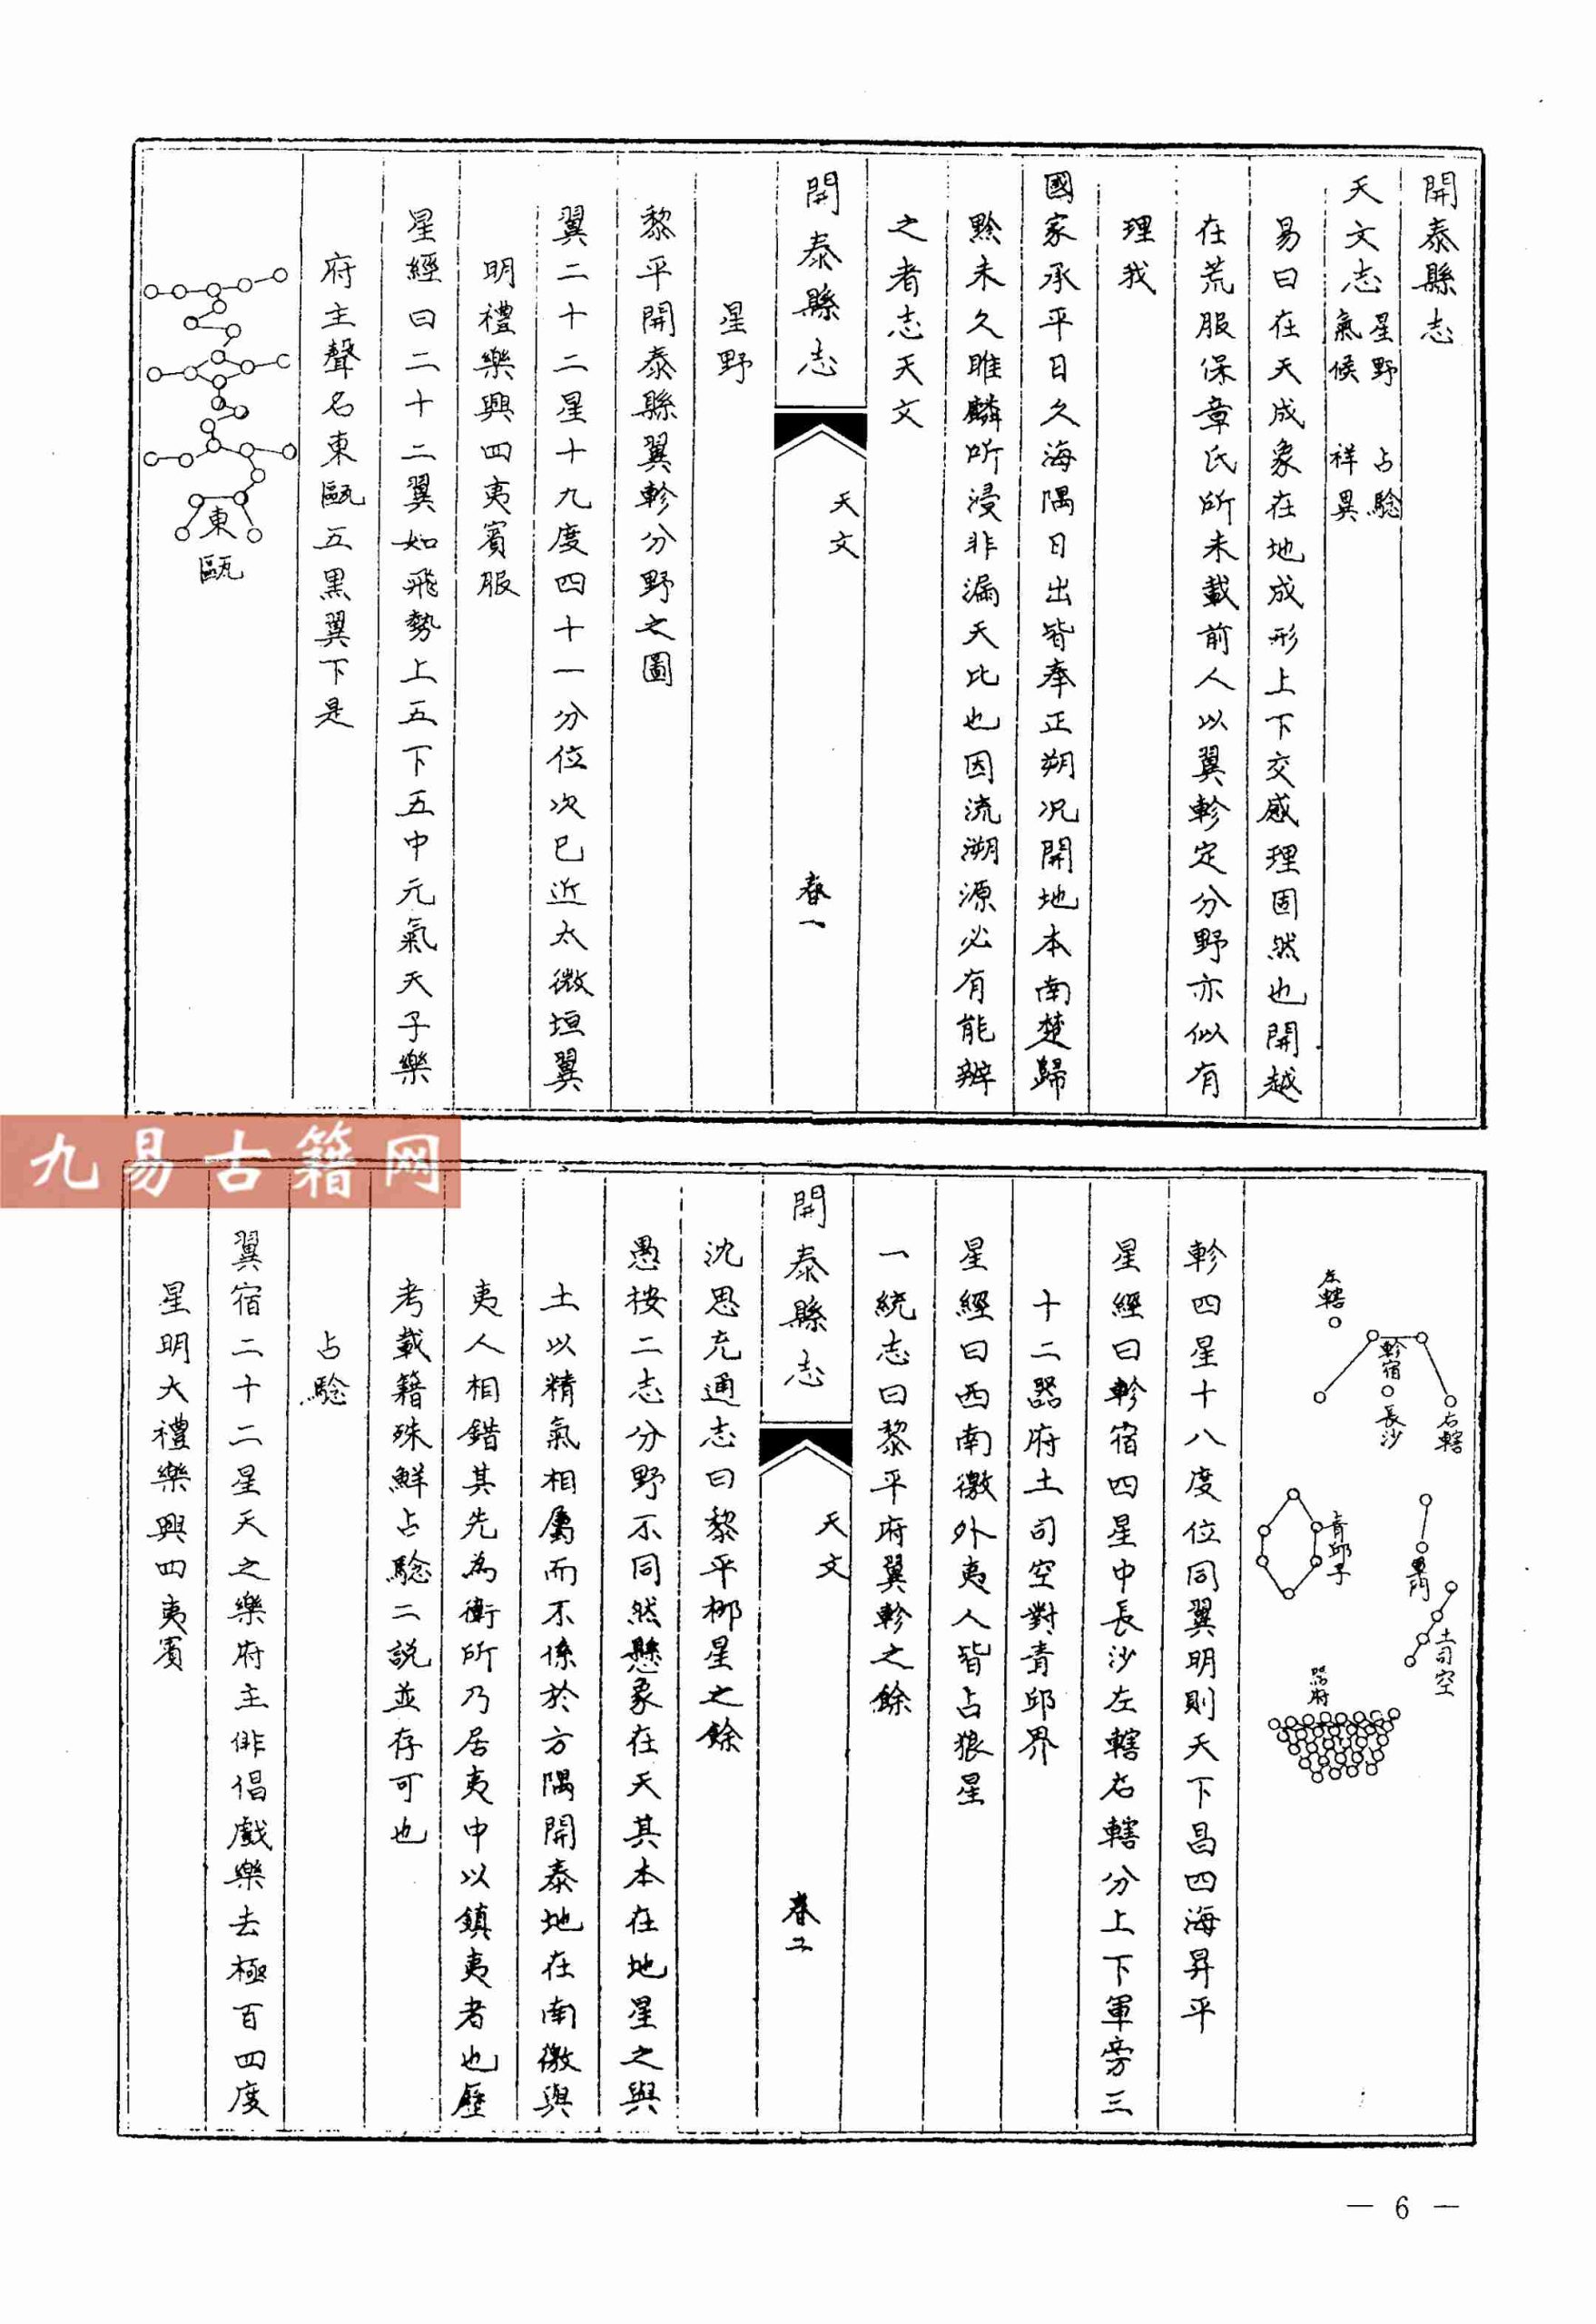 開泰縣志
天文志 星野 占驗
氣候 祥異
易曰在天成象在地成形上下交感理固然也開越
在荒服保章氏所未載前人以翼軫定分野亦似有
理我
國家承平日久海隅日出皆奉正朔况開地本南楚歸
黔未久雎麟所浸非漏天比也因流溯源必有能辨
之者志天文
開泰縣志
天文
卷一
星野
黎平開泰縣翼軫分野之圖
翼二十二星十九度四十一分位次巳近太微垣翼
明禮樂興四夷賓服
星經曰二十二翼如飛勢上五下五中元氣天子樂
府主聲名東甌五黑翼下是
東
甌
左轄
軫宿
長沙
右轄
青邱子
軍門
土司空
器府
軫四星十八度位同翼明則天下昌四海昇平
星經曰軫宿四星中長沙左轄右轄分上下軍旁三
十二器府土司空對青邱界
星經曰西南徼外夷人皆占狼星
一統志曰黎平府翼軫之餘
開泰縣志
天文
卷二
沈思充通志曰黎平柳星之餘
愚按二志分野不同然懸象在天其本在地星之與
土以精氣相屬而不係於方隅開泰地在南徼與
夷人相錯其先為衛所乃居夷中以鎮夷者也歷
考載籍殊鮮占驗二説並存可也
占驗
翼宿二十二星天之樂府主俳倡戲樂去極百四度
星明大禮樂興四夷賓
九易古籍网
— 6 —